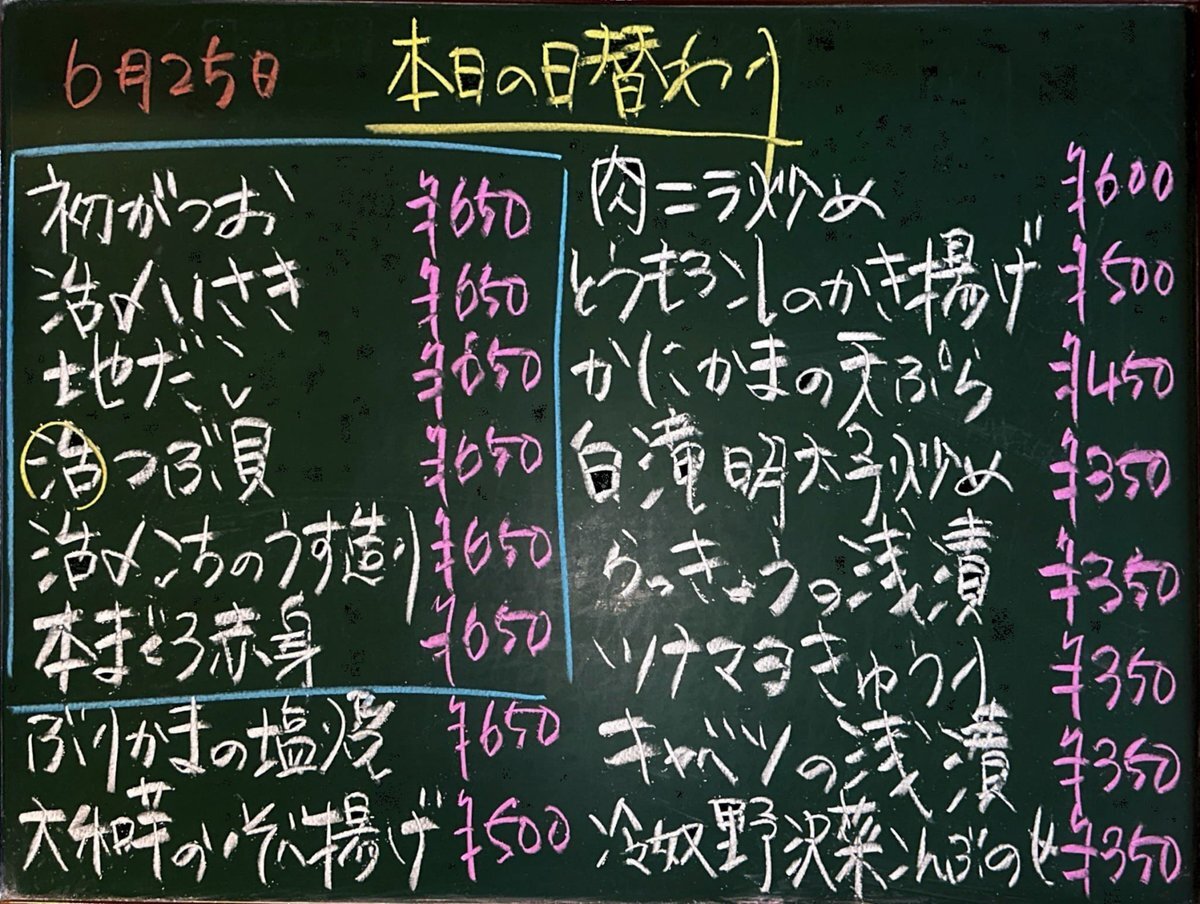 6月25日
本日の日替わり
初がつお ¥650
活〆いさき ¥650
地だこ ¥650
活つぶ貝 ¥650
活〆こちのうす造り ¥650
本まぐろ赤身 ¥650
ぶりかまの塩焼 ¥650
大和芋のいそべ揚げ ¥500
肉ニラ炒め ¥600
とうもろこしのかき揚げ ¥500
かにかまの天ぷら ¥450
白滝明太子炒め ¥350
らっきょうの浅漬 ¥350
ツナマヨきゅうり ¥350
キャベツの浅漬 ¥350
冷奴野沢菜こんぶのせ ¥350